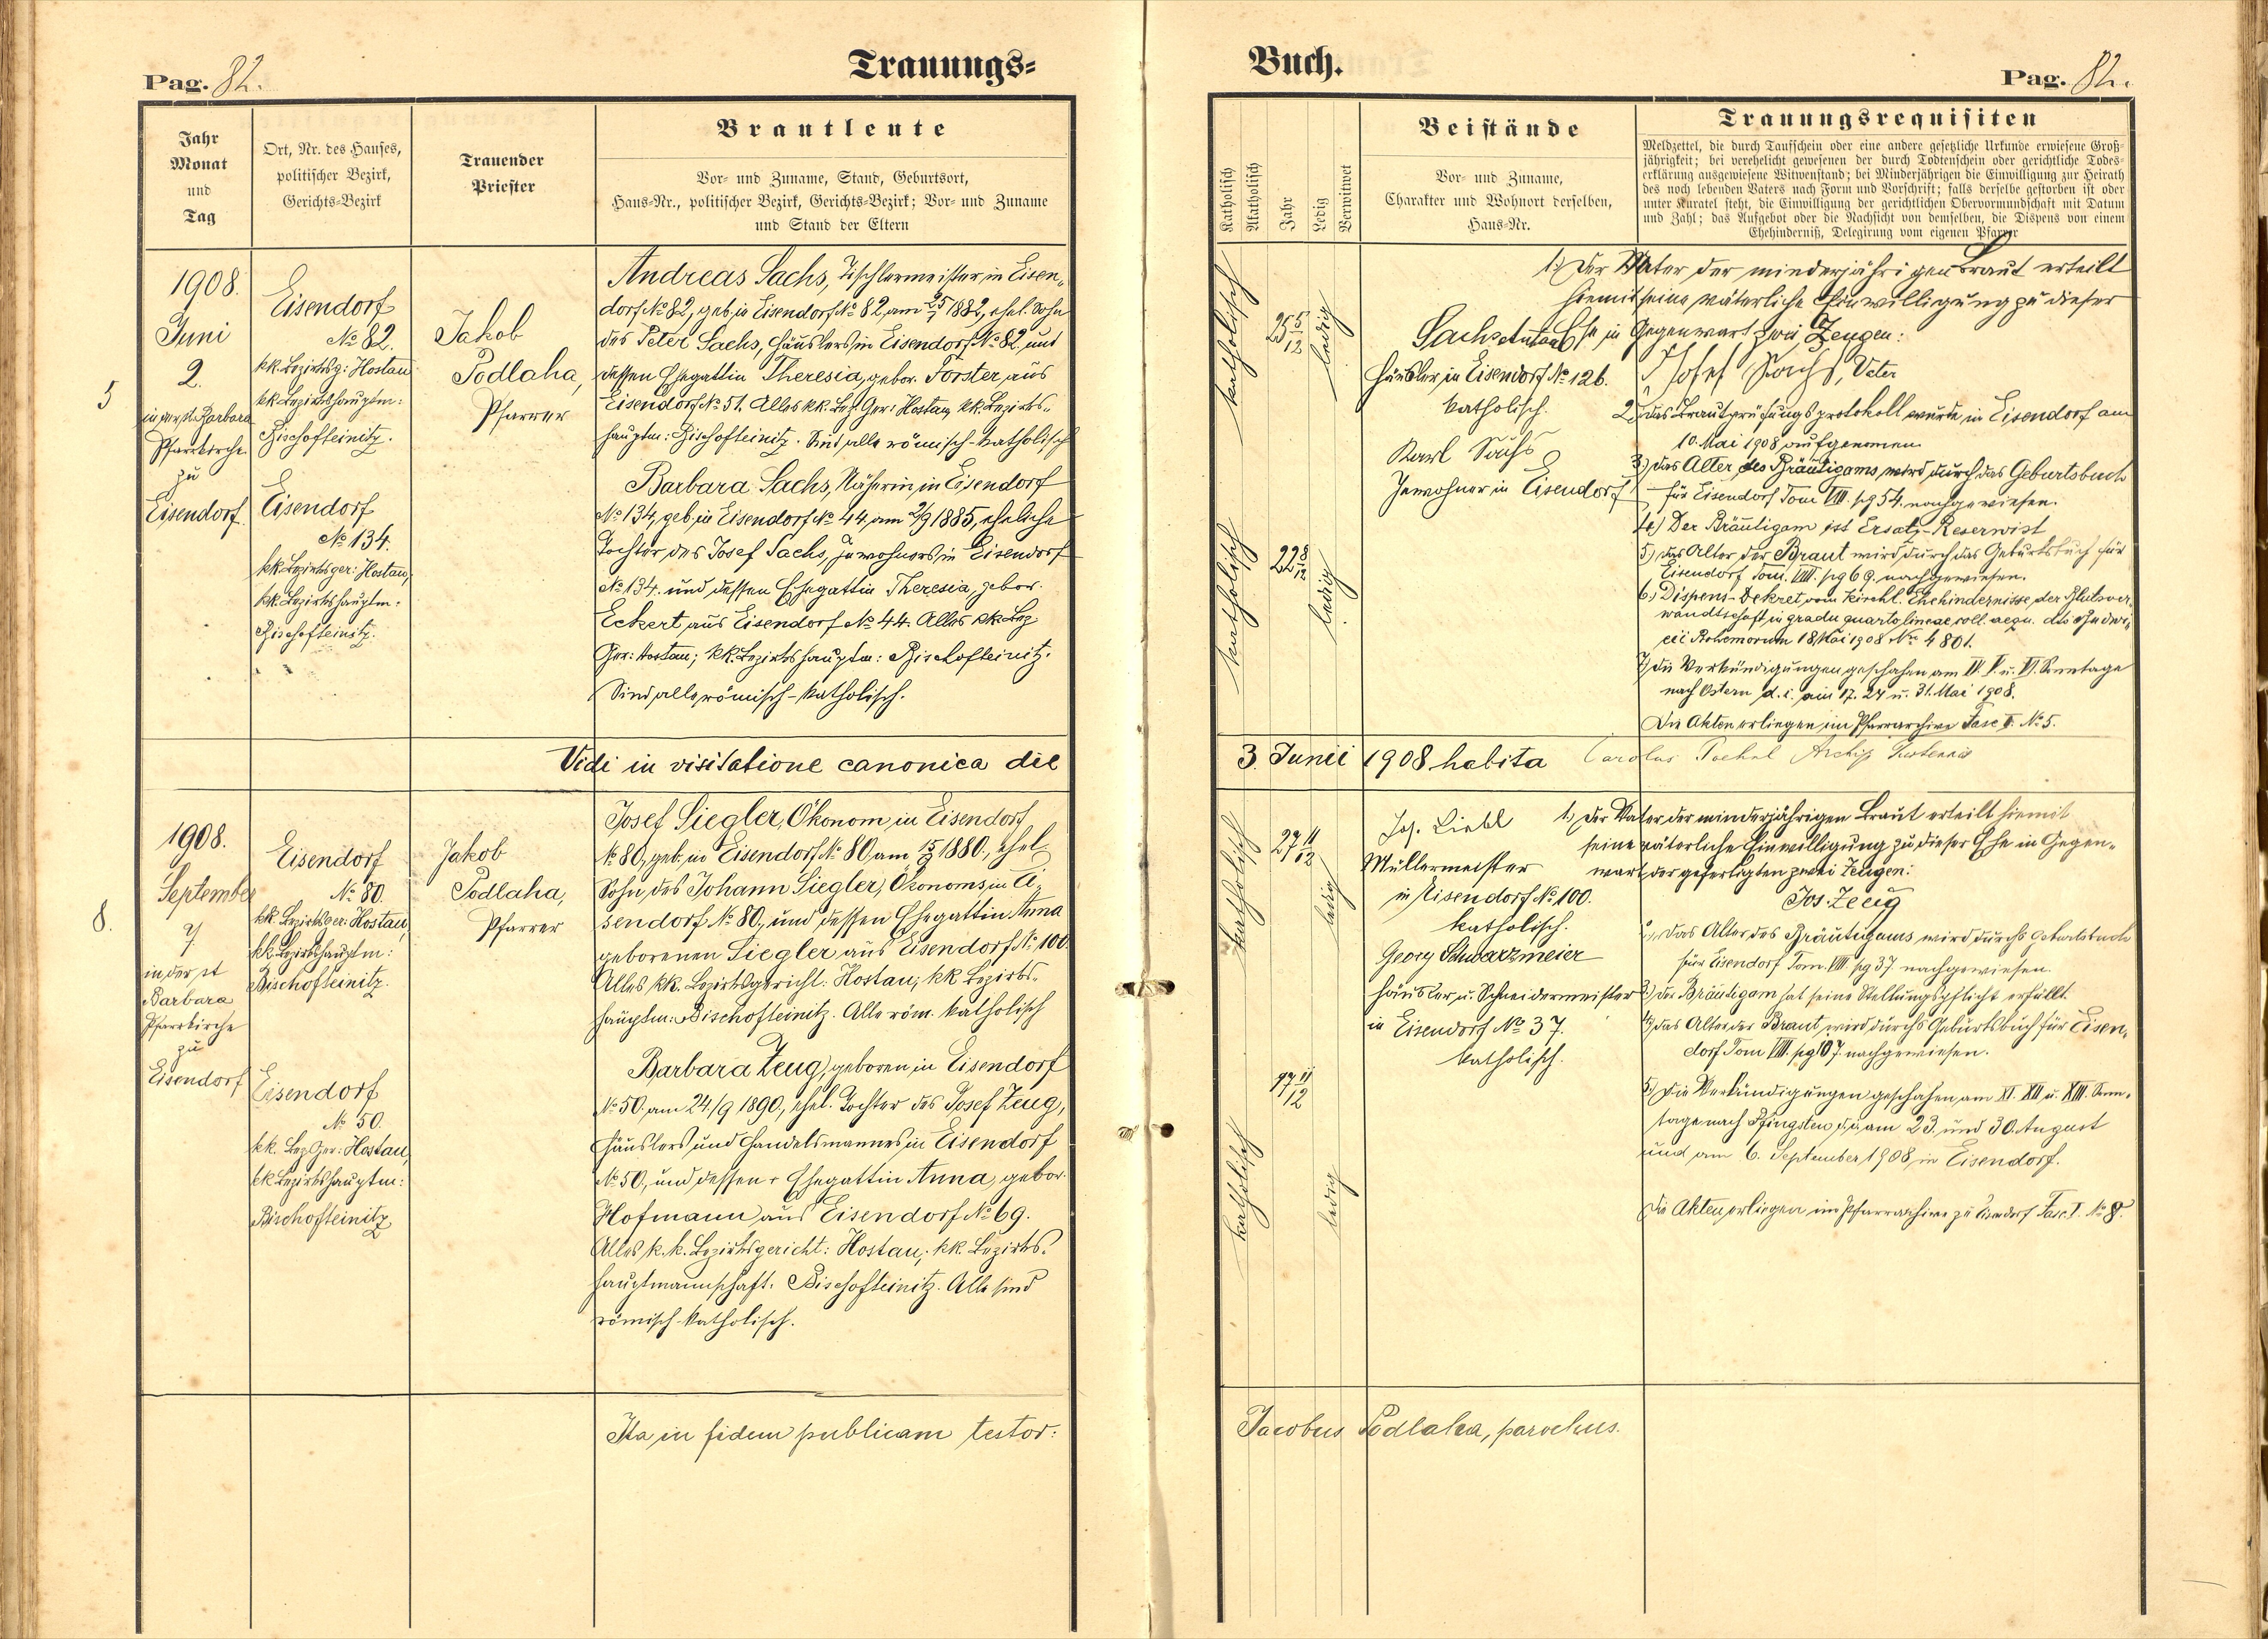 Pag. 82.
Trauungs-
Jahr
Monat
und
Tag
Ort, Nr. des Hauses,
politischer Bezirk,
Gerichts-Bezirk
Trauender
Priester
Brautleute
Vor- und Zuname, Stand, Geburtsort,
Haus-Nr., politischer Bezirk, Gerichts-Bezirk; Vor- und Zuname
und Stand der Eltern
5
1908.
Juni
2.
in der st. Barbara
Pfarrkirche
zu
Eisendorf
Eisendorf
№ 82.
kk. Bezirksg: Hostau
kk Bezirkshauptm:
Bischofteinitz.
Eisendorf
№ 134.
kk Bezirksger: Hostau,
kk. Bezirkshauptm:
Bischofteinitz.
Jakob
Podlaha,
Pfarrer
Andreas Sachs, Tischlermeister in Eisen-
dorf № 82, geb. in Eisendorf № 82, am 25/7 1882, ehel. Sohn
des Peter Sachs, Häuslers in Eisendorf № 82. und
dessen Ehegattin Theresia, gebor. Forster aus
Eisendorf № 51. Alles kk. Bez. Ger: Hostau, kk. Bezirks-
hauptm: Bischofteinitz. Sind alle römisch-katholisch
Barbara Sachs, Näherin in Eisendorf
№ 134, geb. in Eisendorf № 44, am 2/9 1885, eheliche
Tochter des Josef Sachs, Inwohners in Eisendorf
№ 134. und dessen Ehegattin Theresia, gebor.
Eckert aus Eisendorf № 44. Alles kk. Bez
Ger: Hostau; kk. Bezirkshauptm: Bischofteinitz.
Sind alle römisch-katholisch.
Vidi in visitatione canonica die
8.
1908.
September
7.
in der st
Barbara
Pfarrkirche
zu
Eisendorf
Eisendorf
№ 80.
kk Bezirksger: Hostau,
kk Bezirkshauptm:
Bischofteinitz.
Eisendorf
№ 50.
kk. Bez Ger: Hostau,
kk Bezirkshauptm:
Bischofteinitz
Jakob
Podlaha,
Pfarrer
Josef Siegler, Ökonom in Eisendorf
№ 80, geb. in Eisendorf № 80, am 15/9 1880., ehel
Sohn des Johann Siegler, Ökonoms in Ei-
sendorf № 80., und dessen Ehegattin Anna
geborenen Siegler aus Eisendorf № 100.
Alles kk. Bezirksgericht: Hostau; kk Bezirks-
hauptm: Bischofteinitz. Alle röm. katholisch
Barbara Zeug, geboren in Eisendorf
№ 50. am 24./9 1890., ehel. Tochter des Josef Zeug,
Häuslers und Handelsmannes in Eisendorf
№ 50, und dessen Ehegattin Anna, gebor.
Hofmann aus Eisendorf № 69.
Alles k. k. Bezirksgericht: Hostau; kk. Bezirks-
hauptmannschaft: Bischofteinitz. Alle sind
römisch-katholisch.
Ita in fidem publicam testor:
Buch.
Pag. 82.
Katholisch
Akatholisch
Jahr
Ledig
Verwitwet
Beistände
Vor- und Zuname,
Charakter und Wohnort derselben,
Haus-Nr.
Trauungsrequisiten
Meldzettel, die durch Taufschein oder eine andere gesetzliche Urkunde erwiesene Groß-
jährigkeit; bei verehelicht gewesenen der durch Todtenschein oder gerichtliche Todes-
erklärung ausgewiesene Witwenstand; bei Minderjährigen die Einwilligung zur Heirath
des noch lebenden Vaters nach Form und Vorschrift; falls derselbe gestorben ist oder
unter Kuratel steht, die Einwilligung der gerichtlichen Obervormundschaft mit Datum
und Zahl; das Aufgebot oder die Nachsicht von demselben, die Dispens von einem
Ehehinderniß, Delegirung vom eigenen Pfarrer
katholisch
25
12
ledig
katholisch
22 8/12
ledig
Sachs Anton
Häusler in Eisendorf № 126.
katholisch.
Karl Sachs
Inwohner in Eisendorf
1.) Der Vater der minderjährigen Braut erteilt
hiemit seine väterliche Einwilligung zu dieser
Ehe in Gegenwart zwei Zeugen:
Josef Sachs, Vater
2.) das Brautprüfungsprotokoll wurde in Eisendorf am
10. Mai 1908 aufgenomen
3.) das Alter des Bräutigams wird durch das Geburtsbuch
für Eisendorf Tom VIII. pg 54. nachgewiesen.
4.) Der Bräutigam ist Ersatz-Reservist
5.) das Alter der Braut wird durch das Geburtsbuch für
Eisendorf Tom. VIII. pg 69. nachgewiesen.
6.) Dispens-Dekret vom kirchl. Ehehindernisse der Blutsver-
wandtschaft in gradu quarto lineae coll. aequ. dto Budwi-
cii Bohemorum 18 Mai 1908 Nro 4801.
7.) die Verkündigungen geschahen am IV. V. u. VI. Sonntage
nach Ostern d. i. am 17. 24 u. 31. Mai 1908.
Die Akten erliegen im Pfarrarchive Fasc I. № 5.
3. Junii 1908 habita
Carolus
katholisch
27 11/12
ledig
katholisch
17 11/12
ledig
Jos. Liebl
Müllermeister
in Eisendorf № 100.
katholisch.
Georg Schwarzmeier
Häusler u. Schneidermeister
in Eisendorf № 37.
katholisch.
1.) Der Vater der minderjährigen Braut erteilt hiemit
seine väterliche Einwilligung zu dieser Ehe in Gegen-
wart der gefertigten zwei Zeugen:
Jos. Zeug
2.) Das Alter des Bräutigams wird durchs Geburtsbuch
für Eisendorf Tom. VIII. pg 37. nachgewiesen.
3.) der Bräutigam hat seine Stellungspflicht erfüllt.
4.) das Alter der Braut wird durchs Geburtsbuch für Eisen-
dorf Tom VIII. pg 107. nachgewiesen.
5.) Die Verkündigungen geschahen am XI. XII u. XIII. Sonn-
tage nach Pfingsten d. i. am 23. und 30. August
und am 6. September 1908 in Eisendorf.
Die Akten erliegen im Pfarrarchive zu Eisendorf Fasc. I. № 8.
Jacobus Podlaha, parochus.